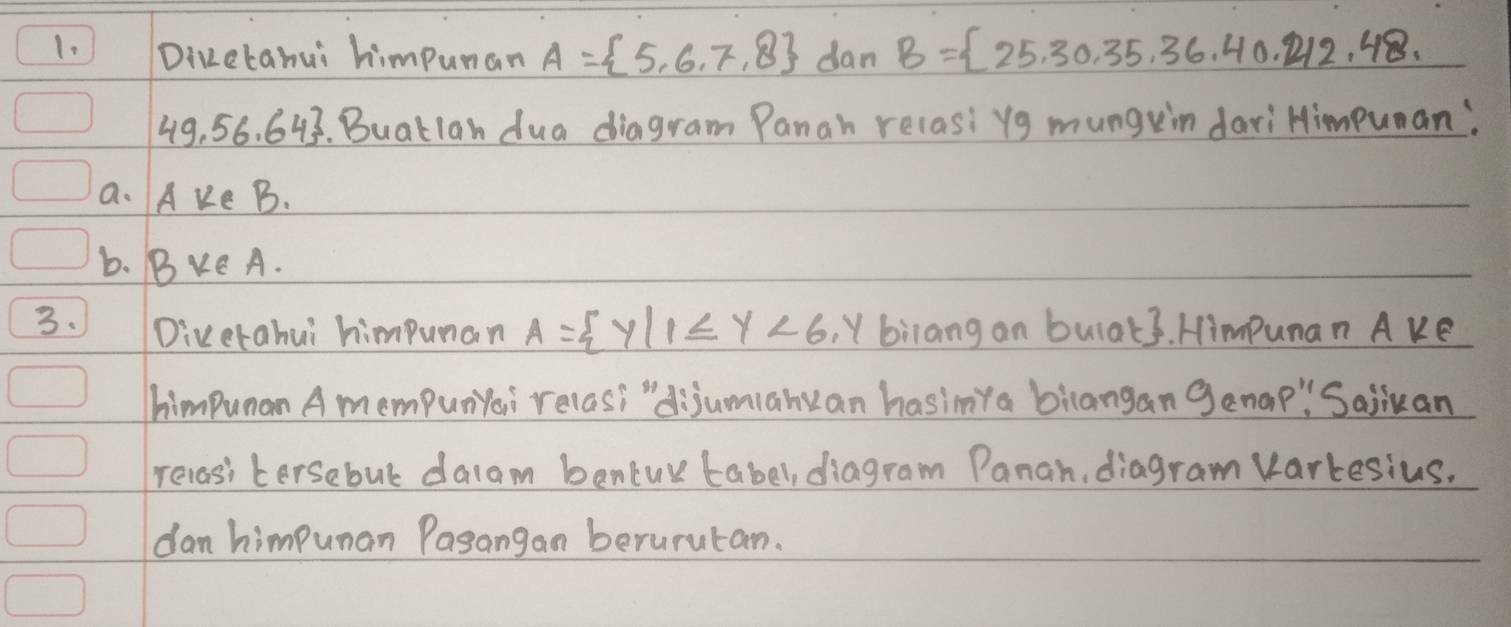 1. Diketahui himpunan A = {5, 6, 7, 8} dan B = {25, 30, 35, 36, 40, 42, 48,
49, 56, 64}. Buatlah dua diagram Panah relasi yg mungkin dari Himpunan:
a. A ke B.
b. B ke A.
3. Diketahui himpunan A = {y | 1 ≤ y < 6, y bilangan bulat}. Himpunan A ke
himpunan A mempunyai relasi "dijumlahkan hasimya bilangan genap". Sajikan
relasi tersebut dalam bentuk tabel, diagram Panah, diagram kartesius,
dan himpunan Pasangan berurutan.